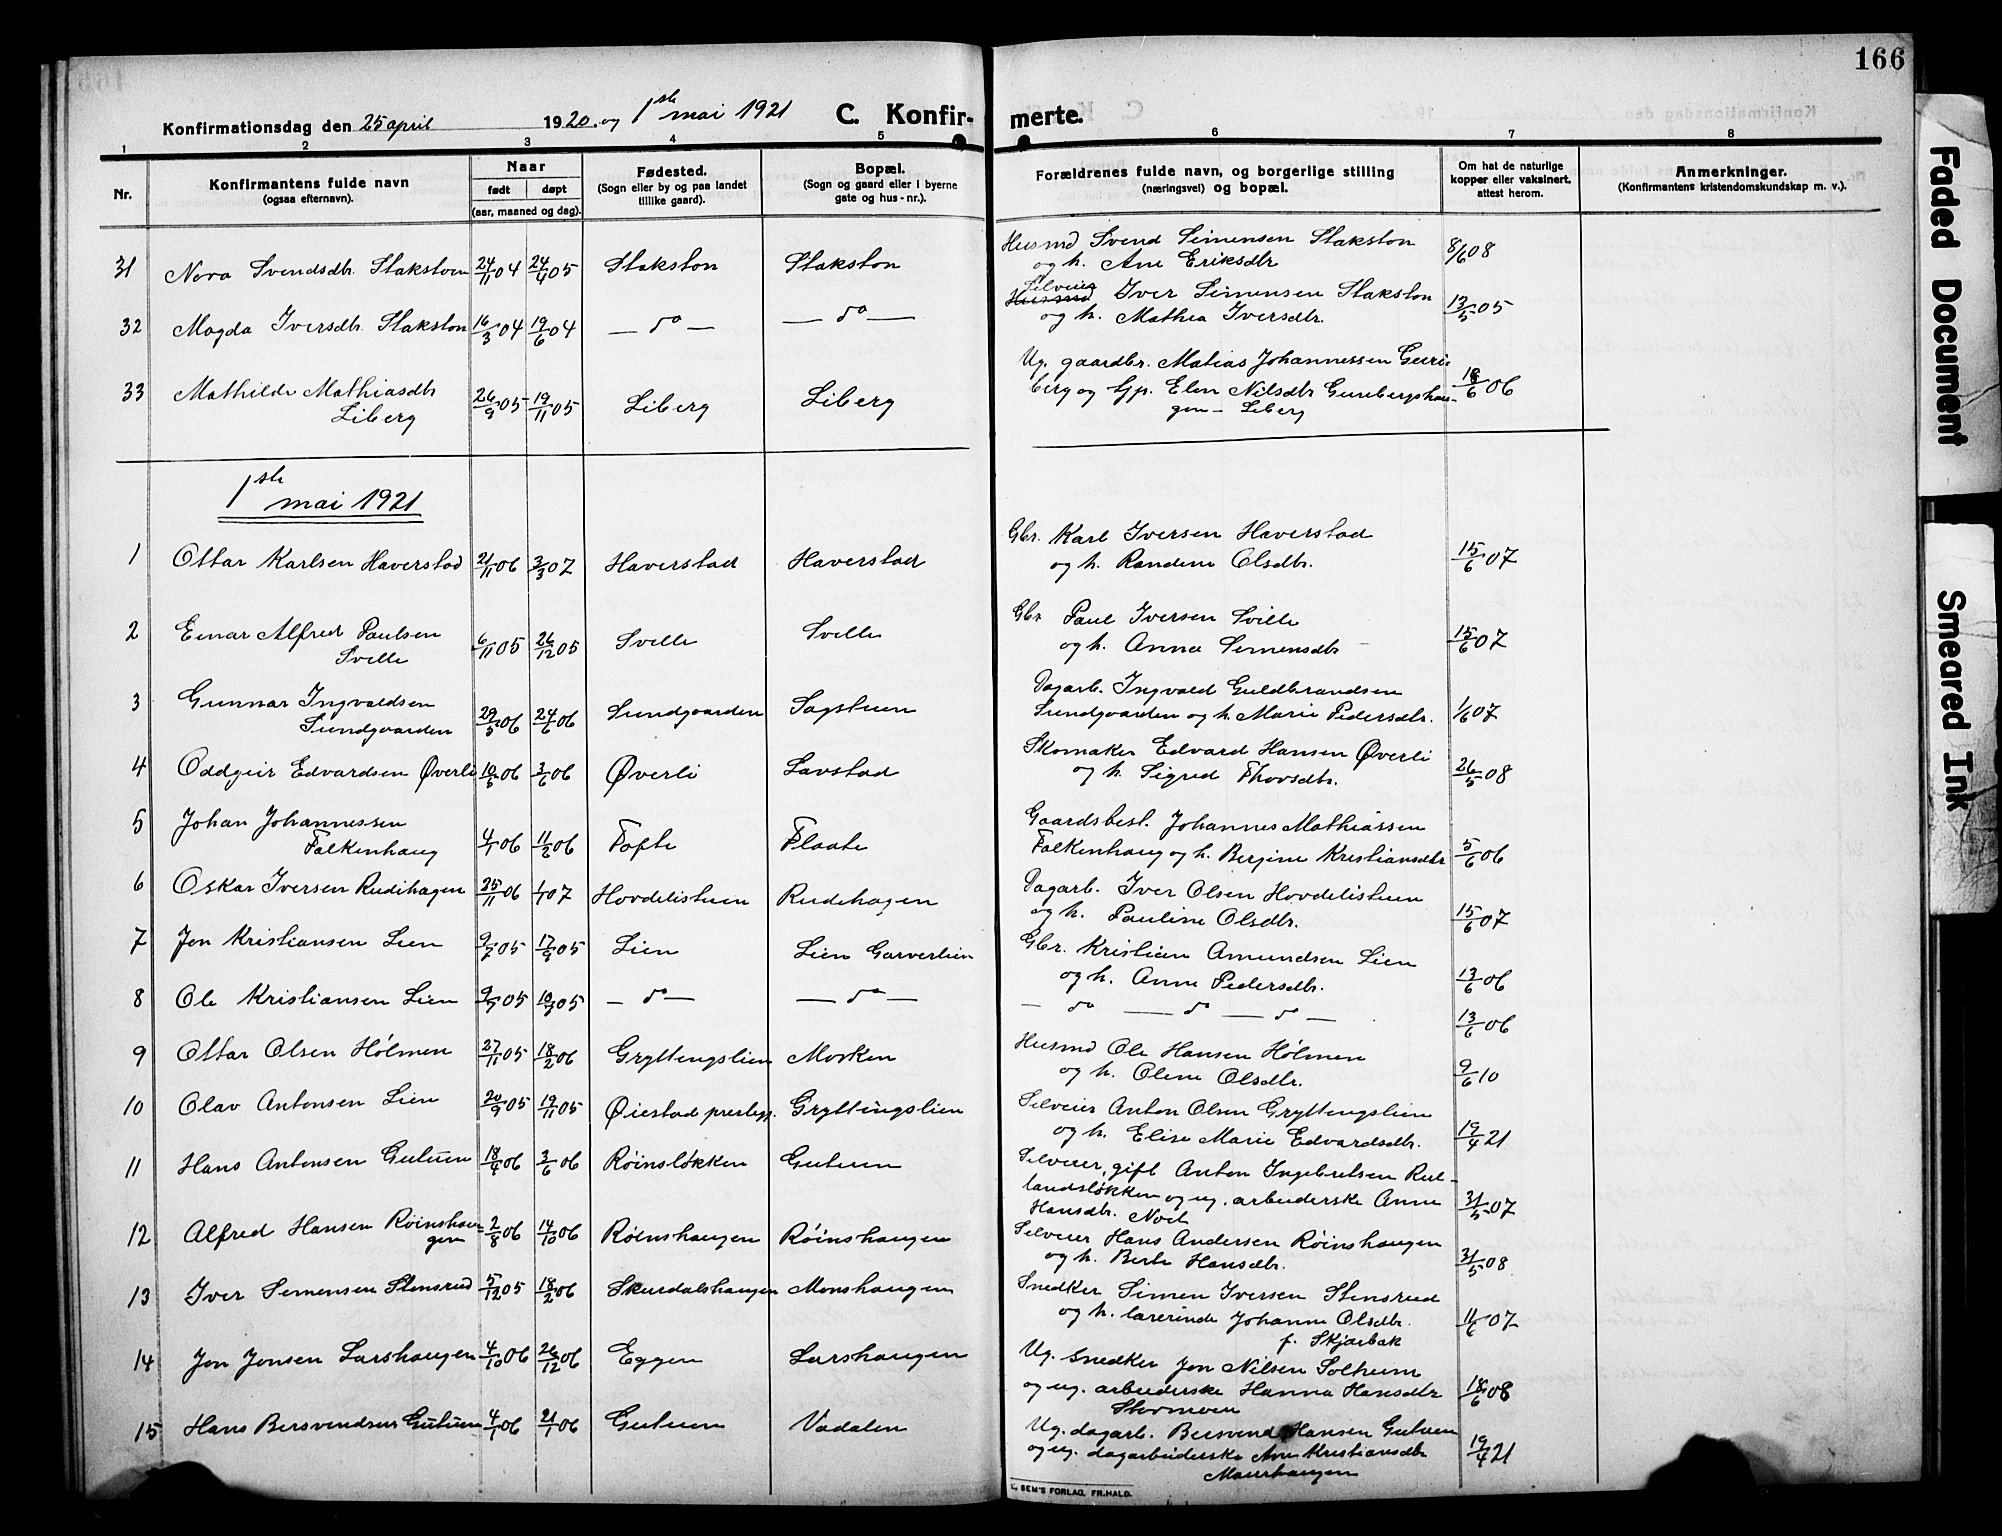 166
Konfirmationsdag den 25 april 1920. og 1ste mai 1921 C. Konfir-
merte.
1 2 3 4 5 6 7 8
Nr.
Konfirmantens fulde navn
(ogsaa efternavn).
Naar
født døpt
(aar, maaned og dag).
Fødested.
(Sogn eller by og paa landet
tillike gaard).
Bopæl.
(Sogn og gaard eller i byerne
gate og hus-nr.).
Forældrenes fulde navn, og borgerlige stilling
(næringsvei) og bopæl.
Om hat de naturlige
kopper eller vaksinert,
attest herom.
Anmerkninger.
(Konfirmantens kristendomskundskap m. v.).
31 Nora Svendsdtr. Stakston 24/11 04 24/4 05 Stakston Stakston
Husmd Svend Simensen Stakston 8/6 08
og h. Ane Eriksdtr
32 Magda Iversdtr. Stakston 16/3 04 19/6 04 — do — — do —
Selveier
Husmd Iver Simensen Stakston 13/5 05
og h. Mathea Iversdtr.
33 Mathilde Mathiasdtr 26/9 05 19/11 05 Liberg Liberg
Liberg
Ug. gaardbr. Matias Johannessen
berg og Elen Nilsdtr 18/6 06
gen - Liberg
1ste
mai 1921
1 Ottar Karlsen Haverstad 21/11 06 3/3 07 Haverstad Haverstad
Gbr. Karl Iversen Haverstad 15/6 07
og h. Randine Olsdtr.
2 Einar Alfred Paulsen 6/11 05 26/12 05 Svelle Svelle
Svelle
Gbr Paul Iversen Svelle 15/6 07
og h. Anna Simensdtr
3 Gunnar Ingvaldsen 29/5 06 24/6 06 Sundgaarden Sagstuen
Sundgaarden
Dagarb. Ingvald Guldbrandsen
Sundgaarden og h. Marie Pedersdtr. 1/6 07
4 Oddgeir Edvardsen Øverli 10/5 06 3/6 06 Øverli Lavstad
Skomaker Edvard Hansen Øverli 26/5 08
og h. Sigrid Thorsdtr.
5 Johan Johannessen 4/1 06 11/2 06 Tofte Flaate
Falkenhaug
Gaardsbest. Johannes Mathiassen
Falkenhaug og h. Bergine Kristiansdtr 5/6 06
6 Oskar Iversen Rudihagen 25/11 06 1/1 07 Hovdelistuen Rudihagen
Dagarb. Iver Olsen Hovdelistuen
og h. Pauline Olsdtr. 15/6 07
7 Jon Kristiansen Lien 9/7 05 17/9 05 Lien Lien Garverlien
Gbr. Kristian Amundsen Lien
og h. Anne Pedersdtr. 13/6 06
8 Ole Kristiansen Lien 9/7 05 10/9 05 — do — — do —
— do — do — do — 13/6 06
9 Ottar Olsen Hólmen 27/11 05 18/2 06 Gryttingslien Morken
Husmd Ole Hansen Hólmen
og h. Oline Olsdtr. 9/6 10
10 Olav Antonsen Lien 20/9 05 19/11 05 Øiestad prestegj. Gryttingslien
Selveier Anton Olsen Gryttingslien
og h. Elise Marie Edvardsdtr. 19/4 21
11 Hans Antonsen Gutuen 18/4 06 3/6 06 Róinslókken Gutuen
Selveier, gift Anton Ingebretsen Rul-
landslókken og ug. arbeiderske Anne 31/5 07
Hansdtr.
12 Alfred Hansen Róinshau- 2/8 06 14/10 06 Róinshaugen Róinshaugen
gen
Selveier Hans Andersen Róinshaugen
og h. Berte Hansdtr. 31/5 08
13 Iver Simensen Stensrud 5/12 05 18/2 06 Skurdalshaugen Monshaugen
Snedker Simen Iversen Stensrud
og h. lærerinde Johanne Olsdtr. 11/6 07
f. Skjæbak
14 Jon Jonsen Larshaugen 4/10 06 26/12 06 Eggen Larshaugen
Ug. snedker Jon Nilsen Solheim
og ug. arbeiderske Hanna Hansdtr 18/6 08
Stormoen
15 Hans Bersvendsen Gutuen 4/1 06 21/1 06 Gutuen Vadalen
Ug. dagarb. Bersvend Hansen Gutuen
og ug. dagarbeiderske Ane Kristiansdtr 19/4 21
Maurhaugen
SEM'S FORLAG, FR.HALD.
Faded Document
Smeared Ink